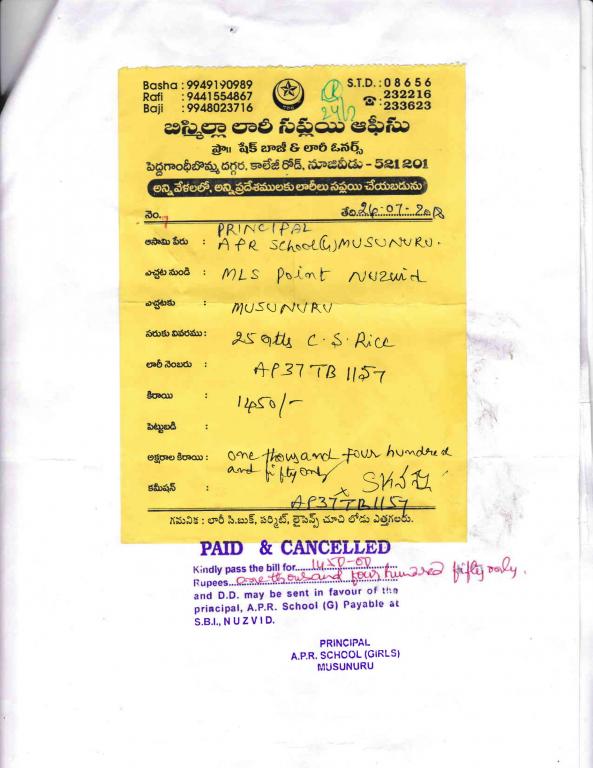 Basha : 9949190989
Rafi : 9441554867
Baji : 9948023716
S.T.D. : 08656
☎ : 232216
233623
24/7
బిస్మిల్లా లారీ సప్లయి ఆఫీసు
ప్రొ॥ షేక్ బాజీ & లారీ ఓనర్స్
పెద్దగాంధీబొమ్మ దగ్గర, కాలేజ్ రోడ్, నూజివీడు - 521 201
అన్ని వేళలలో, అన్ని ప్రదేశములకు లారీలు సప్లయి చేయబడును
నెం. తేది 26-07-2018
PRINCIPAL
ఆసామి పేరు : APR School(G) MUSUNURU.
ఎచ్చట నుండి : MLS Point Nuzvid
ఎచ్చటకు : MUSUNURU
సరుకు వివరము : 25 qtls C.S. Rice
లారీ నెంబరు : AP37 TB 1157
కిరాయి : 1450/-
పెట్టుబడి :
అక్షరాల కిరాయి : one thousand four hundred
and fifty only
కమీషన్ :
x
AP37TB1157
గమనిక : లారీ సి.బుక్, పర్మిట్, లైసెన్స్ చూచి లోడు ఎత్తగలరు.
PAID & CANCELLED
Kindly pass the bill for 1450-00
Rupees one thousand four hundred fifty only.
and D.D. may be sent in favour of the
principal, A.P.R. School (G) Payable at
S.B.I., NUZVID.
PRINCIPAL
A.P.R. SCHOOL (GIRLS)
MUSUNURU